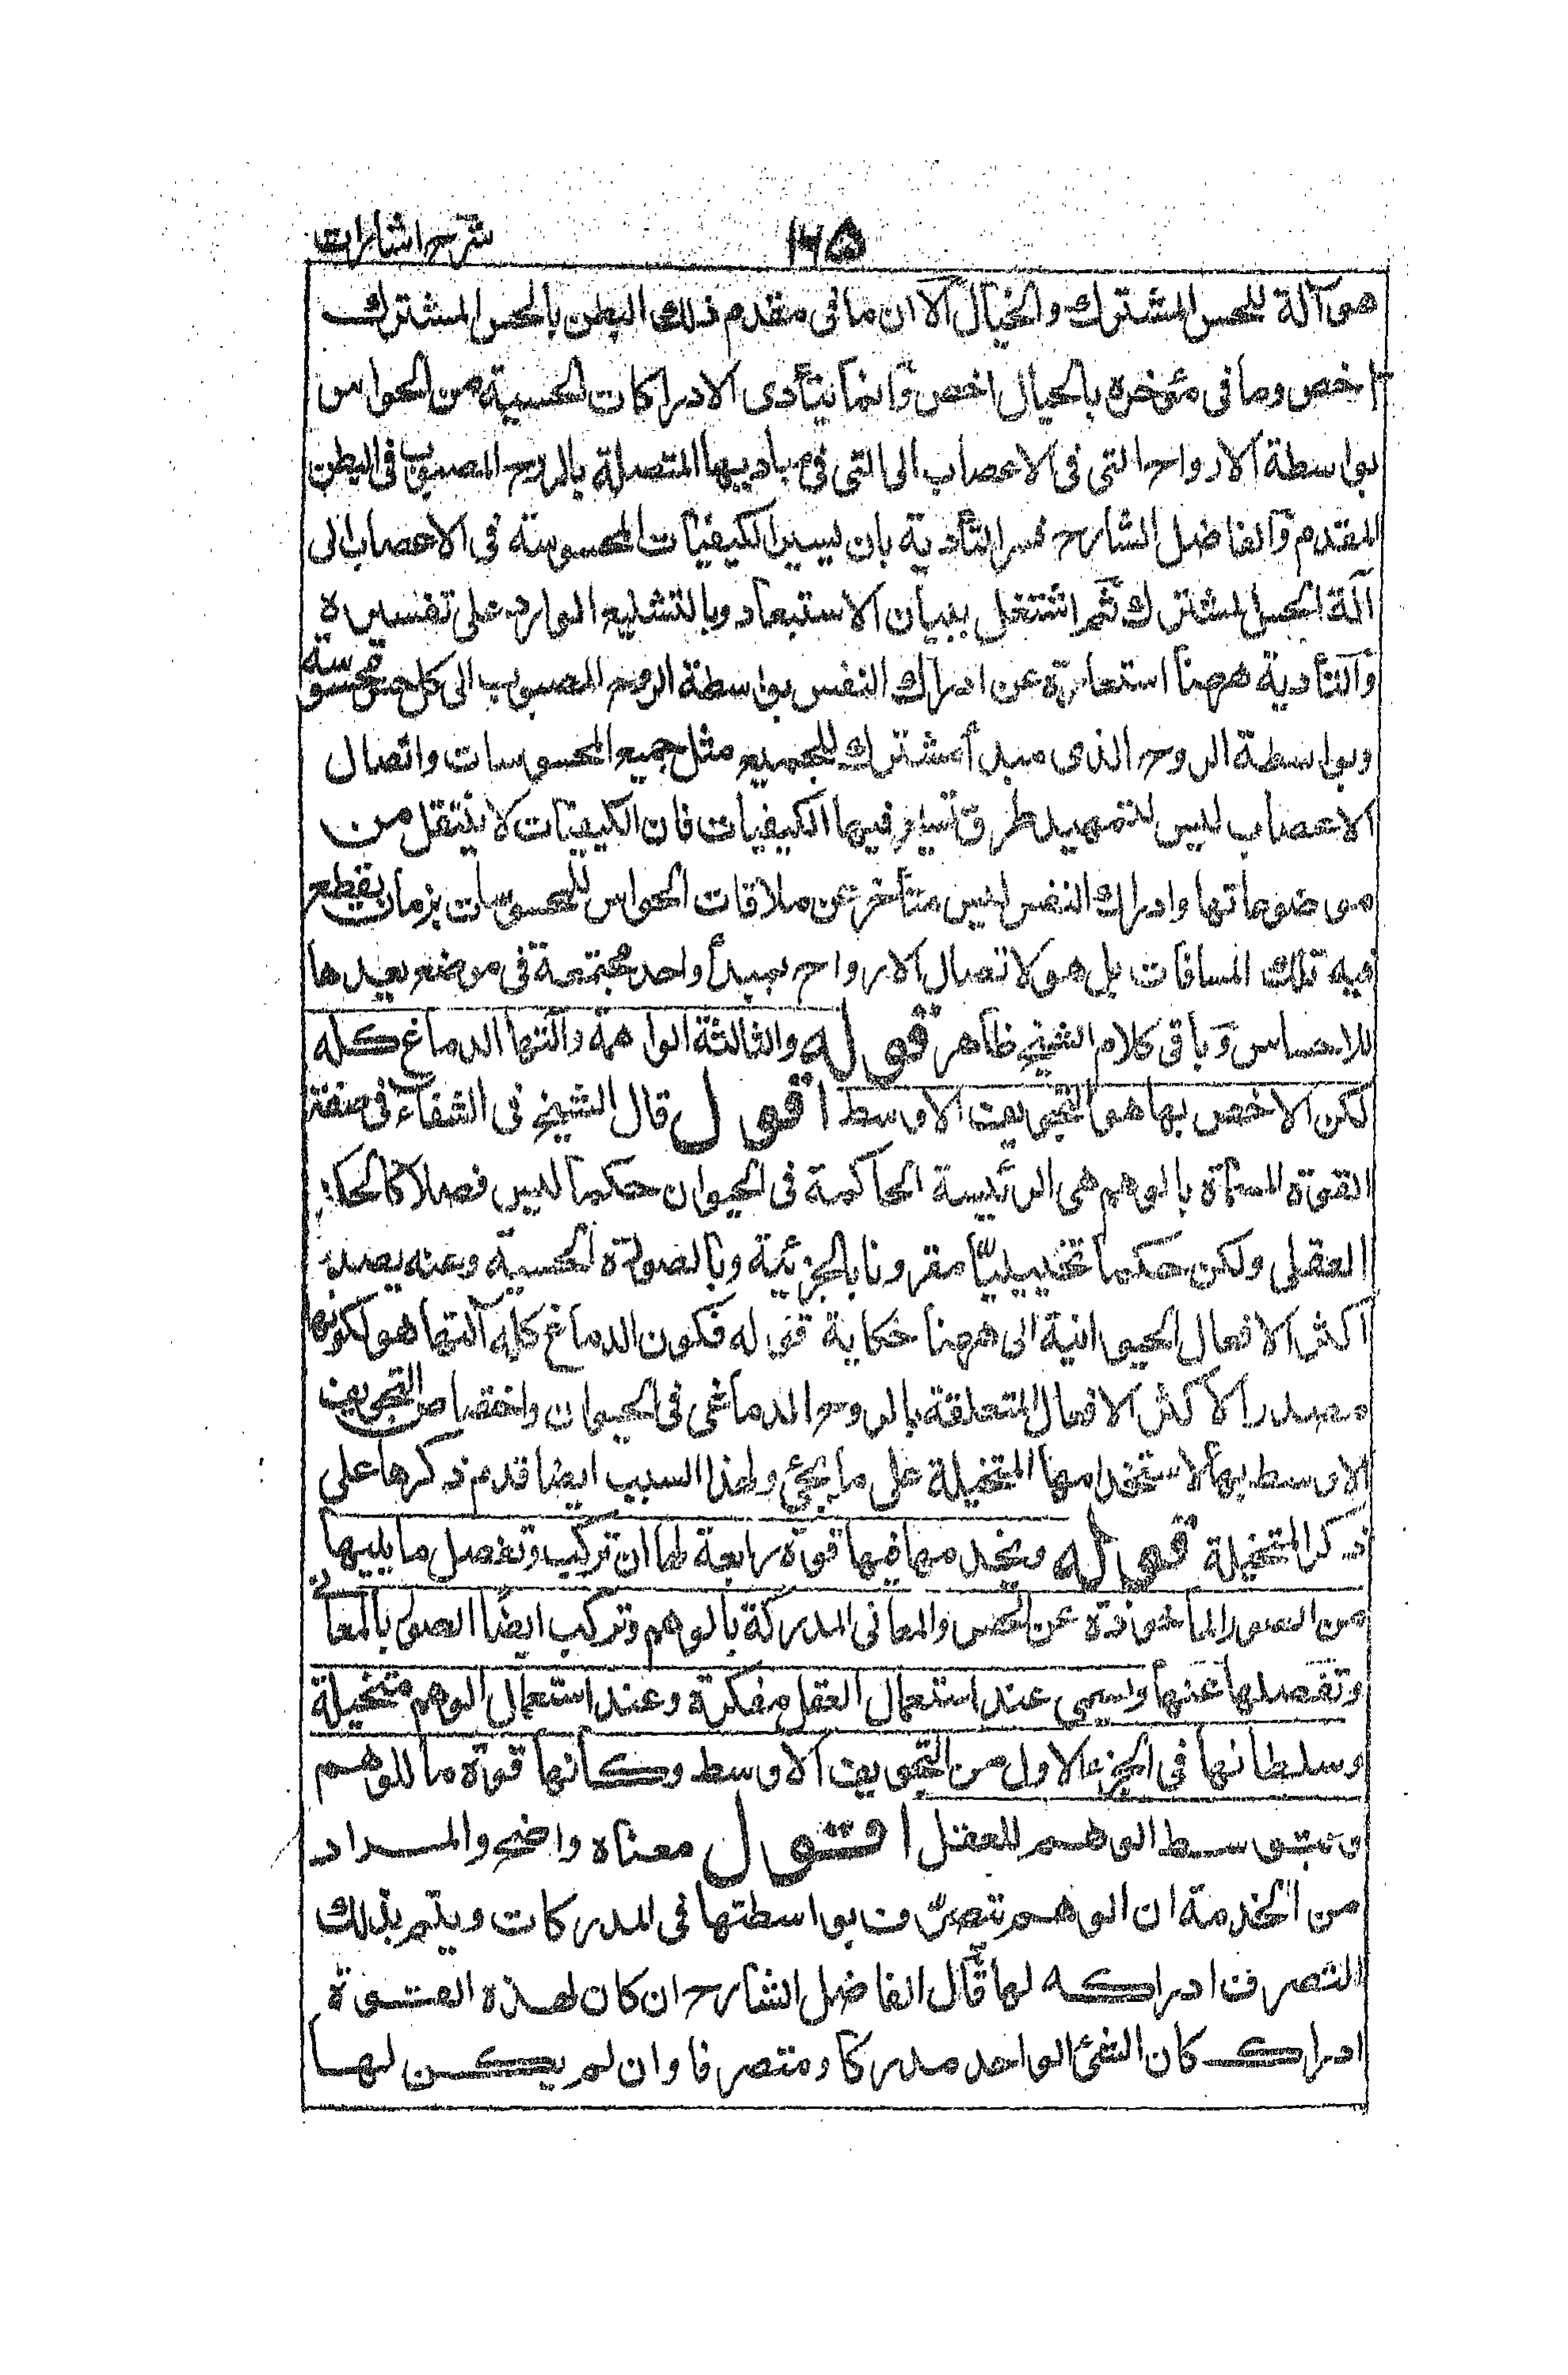 شرح اشارات
١٦٥
هو آلة للحس المشترك والخيال الا ان ما فى مقدم ذلك البطن بالحس المشترك
اخص وما فى مئوخره بالخيال اخص وانما يتأدى الادراكات الحسية من الحواس
بواسطة الارواح التى فى الاعصاب الى التى فى مباديها المتصلة بالروح المصبوب فى البطن
المقدم والفاضل الشارح فسر التأدية بان يسير الكيفيات المحسوسة فى الاعصاب الى
آلة الحس المشترك ثم اشتغل ببيان الاستبعاد وبالتشنيع الوارد على تفسيره
والتأدية ههنا استعارة عن ادراك النفس بواسطة الروح المصبوب الى كل حس محسوسة
وبواسطة الروح الذى مبدأ مشترك للجميع مثل جميع المحسوسات واتصال
الاعصاب ليس لتمهيد طرق تسير فيها الكيفيات فان الكيفيات لا ينتقل من
موضوعاتها وادراك النفس ليس متأخر عن ملاقات الحواس للمحسوسات بزمان يقطع
فيه تلك المسافات بل هو لاتصال الارواح بمبدأ واحد مجتمعة فى موضع يعدها
للاحساس وباقى كلام الشيخ ظاهر قوله والثالثة الواهمة وآلتها الدماغ كله
لكن الاخص بها هو التجويف الاوسط اقول قال الشيخ فى الشفاء فى صفة
القوة المسماة بالوهم هى الرئيسة الحاكمة فى الحيوان حكما ليس فصلا كالحكم
العقلى ولكن حكما تخييليّا مقرونا بالجزئية وبالصورة الحسية وعنه يصدر
اكثر الافعال الحيوانية الى ههنا حكاية قوله فكون الدماغ كله آلتها هو لكونها
مصدرا لاكثر الافعال المتعلقة بالروح الدماغى فى الحيوان واختصاص التجويف
الاوسط بها لاستخدامها المتخيلة على ما يجئ ولهذا السبب ايضا قدم ذكرها على
ذكر المتخيلة قوله ويخدمها فيها قوة رابعة لها ان تركب وتفصل ما يليها
من الصور المأخوذة عن الحس والمعانى المدركة بالوهم وتركب ايضًا الصور بالمعانى
وتفصلها عنها وتسمى عند استعمال العقل مفكرة وعند استعمال الوهم متخيلة
وسلطانها فى الجزء الاول من التجويف الاوسط وكأنها قوة ما للوهم
وبتوسط الوهم للعقل اقول معناه واضح والمراد
من الخدمة ان الوهم يتصرّف بواسطتها فى المدركات ويتم بذلك
التصرف ادراكه لها قال الفاضل الشارح ان كان لهذه القوة
ادراك كان الشئ الواحد مدركا ومتصرفا وان لم يكن لها